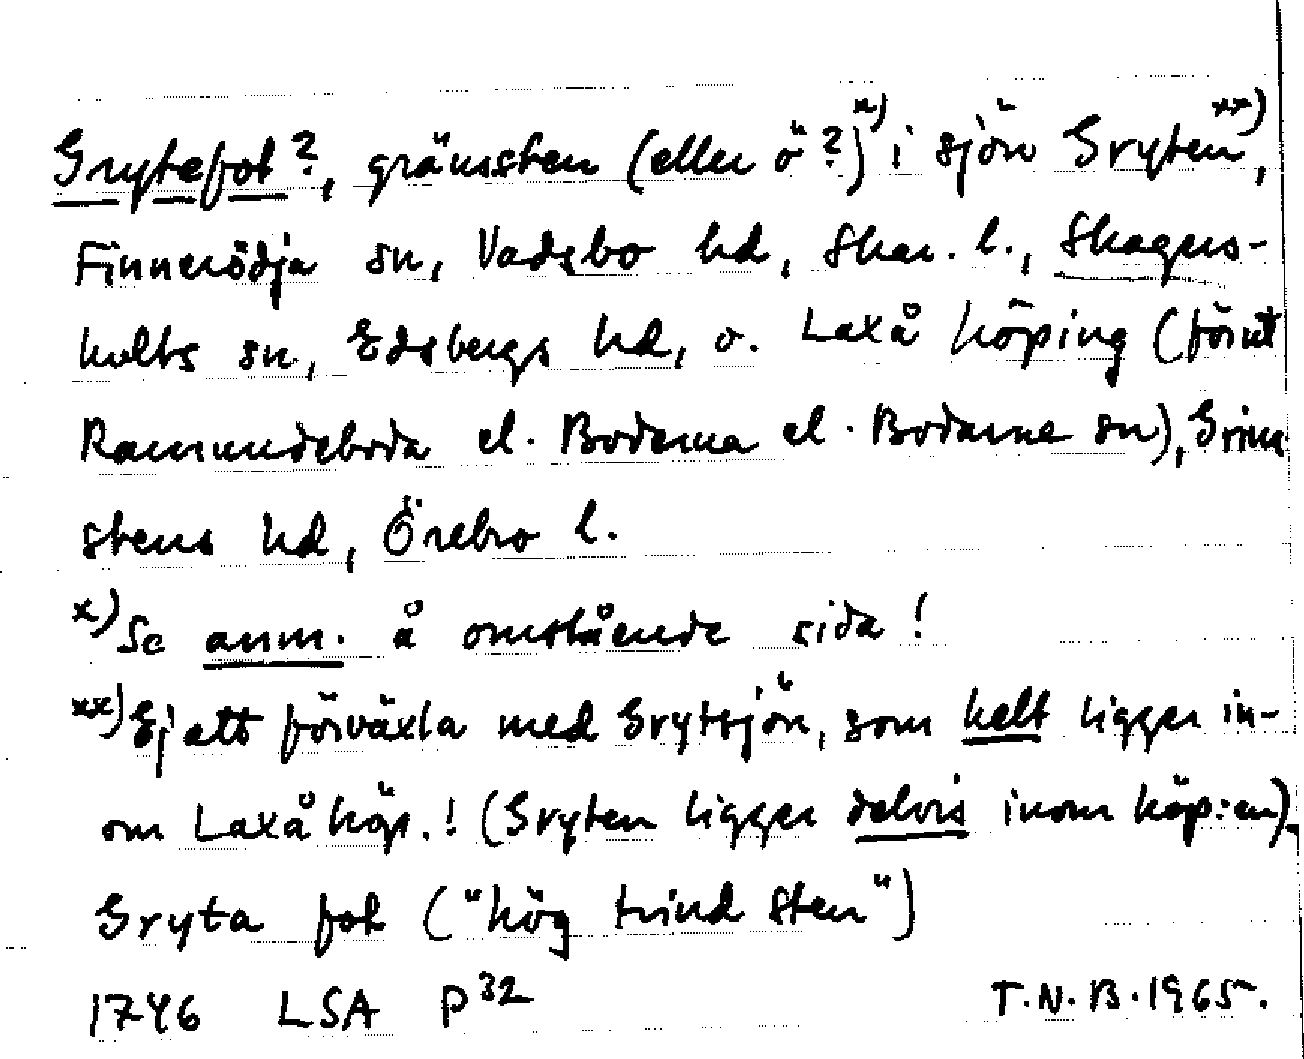 Grytefot?, gränssten (eller ö?)x) i sjön Grytenxx),
Finnerödja sn, Vadsbo hd, Skar. l., Skagers-
hults sn, Edsbergs hd, o. Laxå köping (förut
Ramundeboda el. Boderna el. Bodarne sn), Grim
stens hd, Örebro l.
x) Se anm. å omstående sida!
xx) Ej att förväxla med Grytsjön, som helt ligger in-
om Laxå köp.! (Gryten ligger delvis inom köp:en).
Gryta fot ("hög trind sten")
1746 LSA P32 T.N.B. 1965.